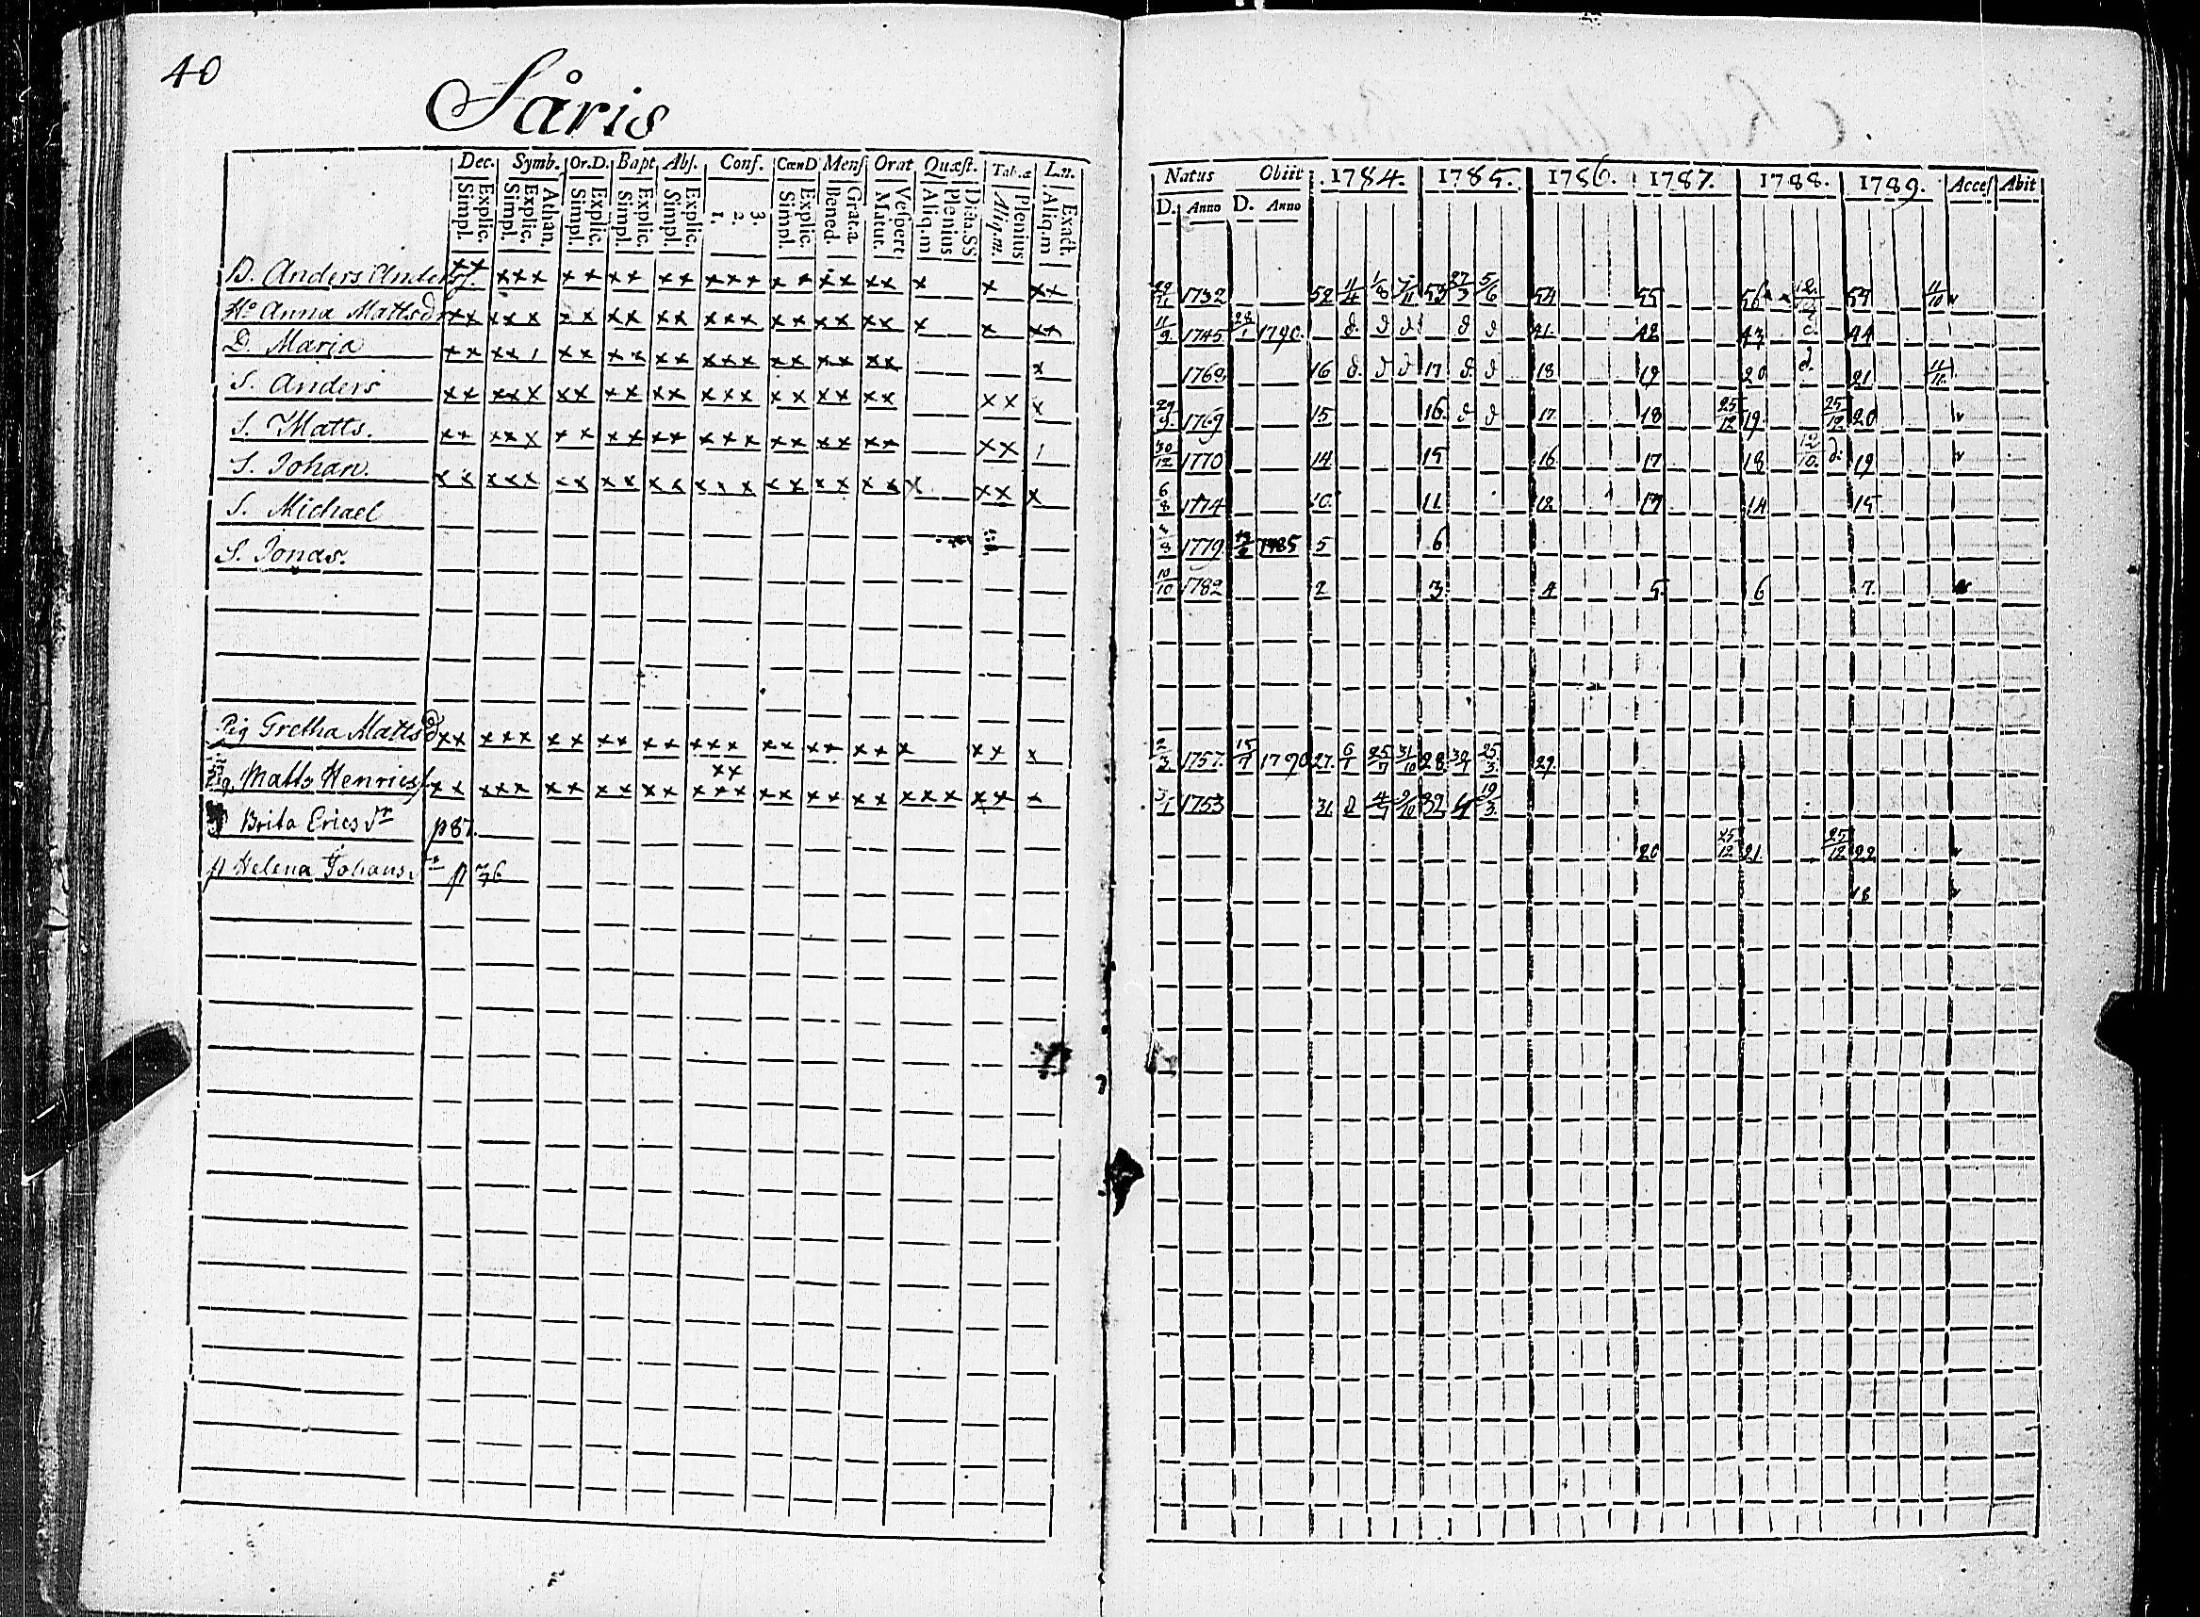 40
Såris
Dec. Symb. Or.D. Bapt. Abs. Conf. CœnD Mens Orat Quæst. Tab.æ
Explic. Simpl. Athan. Explic. Simpl. Explic. Simpl. Explic. Simpl. Explic. Simpl. 3. 2. 1. Explic. Simpl. Grat.a. Bened. Vespert Matut. Dicta.SS Plenius Aliq.m Plenius Aliq.m. Exact. Aliq.m
Natus Obiit 1784. 1785. 1786. 1787. 1788. 1789. Access Abit
D. Anno D. Anno
B. Anders Anderss. 1732 52 4/4 1/8 53 27/3 5/6 54 55 56 57 11/10
Hu Anna Mattsdr 11/9 1745 28/1 1790. d. d d. d d 41. 42 43 d. 44
D. Maria 1768 16 d. d d 17 d d 18 19 20 d. 21
S. Anders 29/9 1769 15 16 d d 17 18 25/12 19 25/12 20
S. Matts. 30/12 1770 14 15 16 17 18 12/10 d. 19
S. Johan. 6/8 1774 10 11 12 13 14 15
S. Michael 1779 1785 5 6
S. Jonas. 10/10 1782 2 3 4 5. 6 7.
Pig Gretha Mattsd 2/2 1757. 15/7 1790 27. 6/1 25/7 31/10 28 25/3 29.
Matts Henricss 3/1 1753 31 d 4/7 9/10 32 19/3
Brita Ericsdr p 87. 20 25/12 21. 25/12 22
p Helena Johans. dr p 76 18